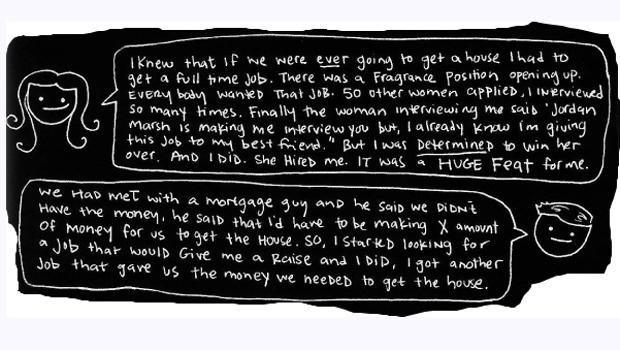 I Knew that if we were ever going to get a house I had to
get a full time job. There was a Fragrance Position opening up.
Everybody wanted That Job. 50 other women applied, I interviewed
so many times. Finally the woman interviewing me said "Jordan
Marsh is making me interview you but, I already know i'm giving
this job to my best friend." But I was Determined to win her
over. AND I DID. She HIRED me. IT was a HUGE Feat for me.
We Had met with a mortgage guy and he said we DIDN'T
Have the money, he said that I'd have to be making X amount
Of money for us to get the House. SO, I started looking for
a Job that would Give me a Raise and I DID, I got another
Job that gave us the money we needed to get the house.